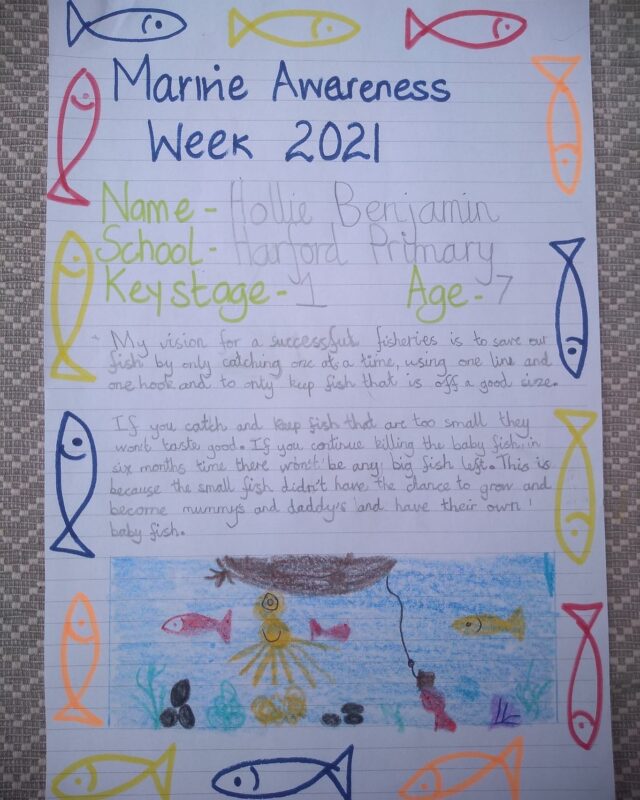 Marine Awareness
Week 2021
Name - Hollie Benjamin
School - Harford Primary
Keystage - 1 Age - 7
My vision for a successful fisheries is to save our
fish by only catching one at a time, using one line and
one hook and to only keep fish that is off a good size.
If you catch and keep fish that are too small they
won't taste good. If you continue killing the baby fish, in
six months time there won't be any big fish left. This is
because the small fish didn't have the chance to grow and
become mummy's and daddy's and have their own
baby fish.